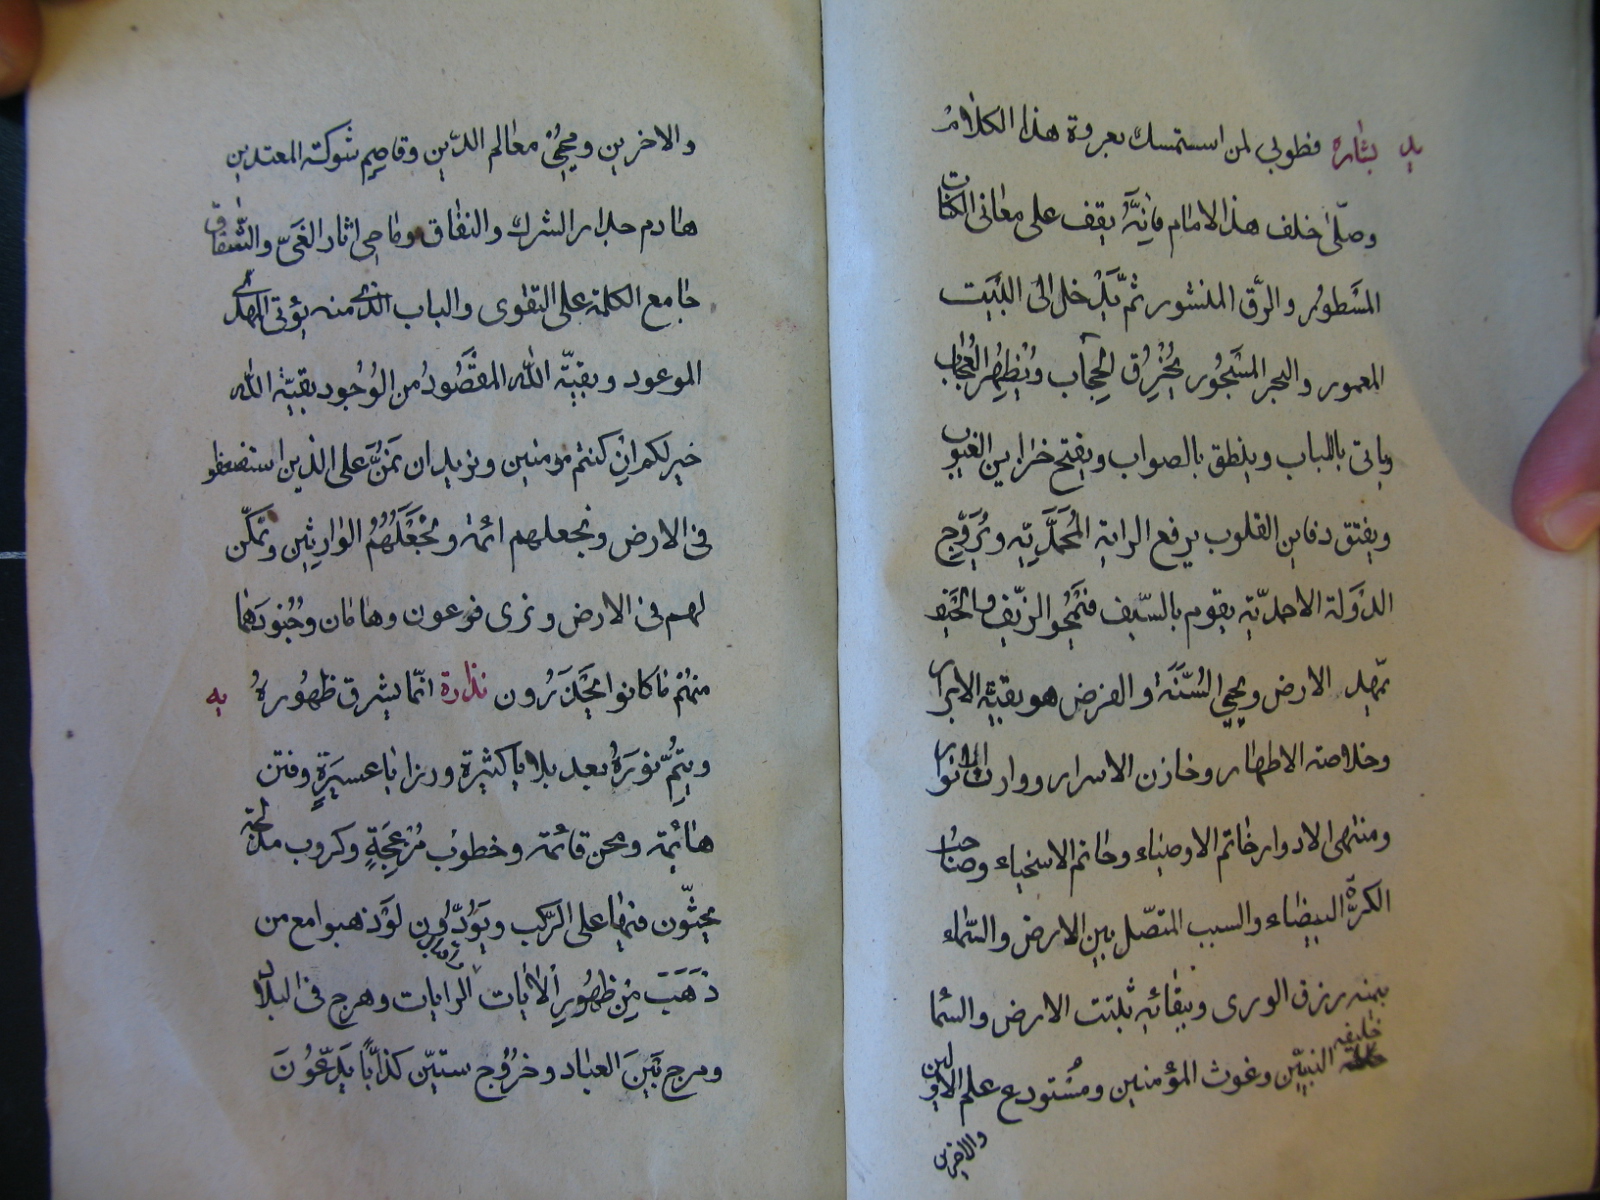 ید بشارة فطوبی لمن استمسك بعروة هذا الکلام
وصلّی خلف هذا الامام فانّه یقف علی معانی الکتاب
المسطور والرّق المنشور ثمّ یدخل الی البیت
المعمور والبحر المسجور یخرق الحجاب ویظهر العجاب
ویاتی باللباب وینطق بالصواب ویفتح خزاین الغیوب
ویفتق دفاین القلوب یرفع الرایة المحمّدیّه ویروّج
الدّولة الاحمدیّه یقوم بالسّیف فیمحو الزّیف والحیف
یمهّد الارض ویحیی السنّة والفرض هو بقیّة الابرار
وخلاصة الاطهار وخازن الاسرار ووارث الانوار
ومنتهی الادوار خاتم الاوصیاء وخاتم الاسخیاء وصاحب
الکرّة البیضاء والسبب المتصّل بین الارض والسّماء
بیمنه رزق الوری وببقائه ثبتت الارض والسّما
خلیفه النبیّین وغوث المؤمنین ومستودع علم الاولین
والاخرین
والاخرین ومحیی معالم الدّین وقاصم شوکة المعتدین
هادم جدار الشرك والنفاق وماحی اثار الغیّ والشقاق
جامع الکلمة علی التقوی والباب الذی منه یؤتی المهدی
الموعود وبقیّة الله المقصود من الوجود بقیّة الله
خیر لکم ان کنتم مومنین ونرید ان نمنّ علی الذین استضعفو
فی الارض ونجعلهم ائمة ونجعلهم الوارثین ونمکّن
لهم فی الارض ونری فرعون وهامان وجنودهما
منهم ما کانوا یحذرون نذارة انّما یشرق ظهوره یه
ویتمّ نوره بعد بلایا کثیرة ورزایا عسیرة وفتن
هائمة ومحن قائمة وخطوب مزعجة وکروب مدلجة
یجثّون فیها علی الرّکب ویودّون لو ذهبوا مع من
ذهب من ظهور الایات الرایات وهرج فی البلاد
ومرج بین العباد وخروج ستّین کذاباً یدّعون